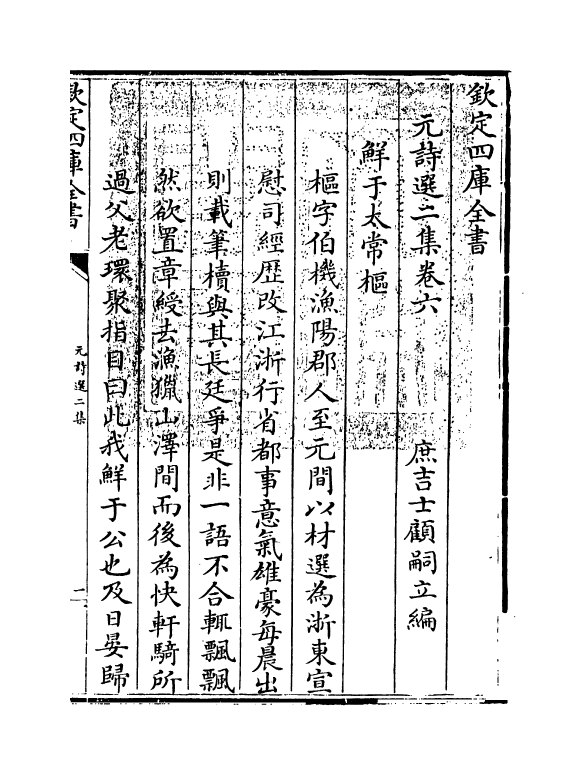 欽定四庫全書
元詩選二集卷六
庶吉士顧嗣立編
鮮于太常樞
樞字伯機漁陽郡人至元間以材選為浙東宣
慰司經歷改江浙行省都事意氣雄豪每晨出
則載筆櫝與其長廷爭是非一語不合輒飄飄
然欲置章綬去漁獵山澤間而後為快軒騎所
過父老環聚指目曰此我鮮于公也及日晏歸
欽定四庫全書
元詩選二集